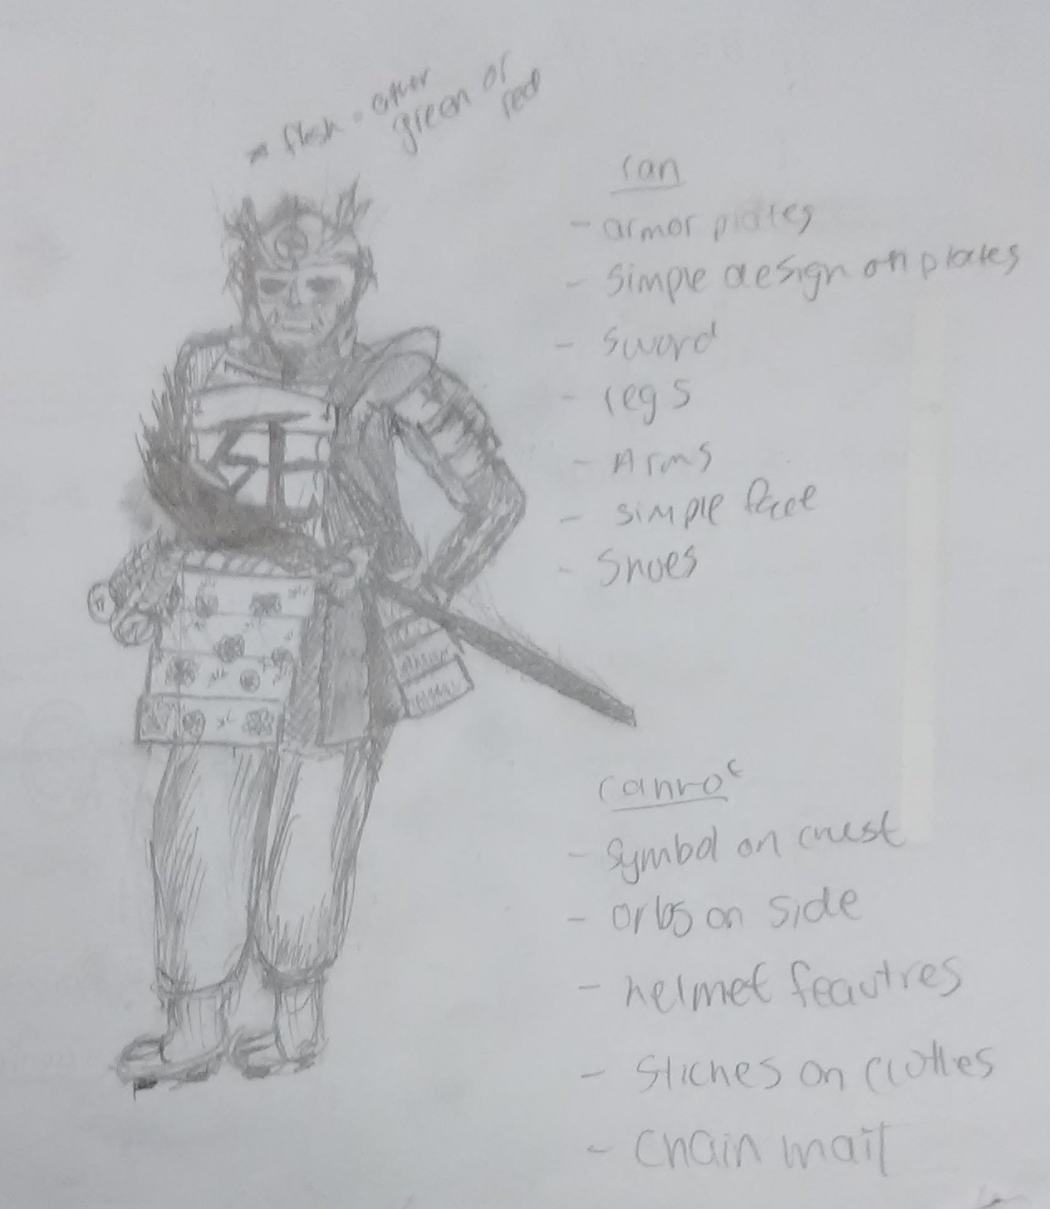 flesh = other
green or
red
can
- armor plates
- simple design on plates
- sword
- legs
- Arms
- simple face
- Shoes
cannot
- symbol on chest
- orbs on side
- helmet feautres
- Stiches on clothes
- Chain mail